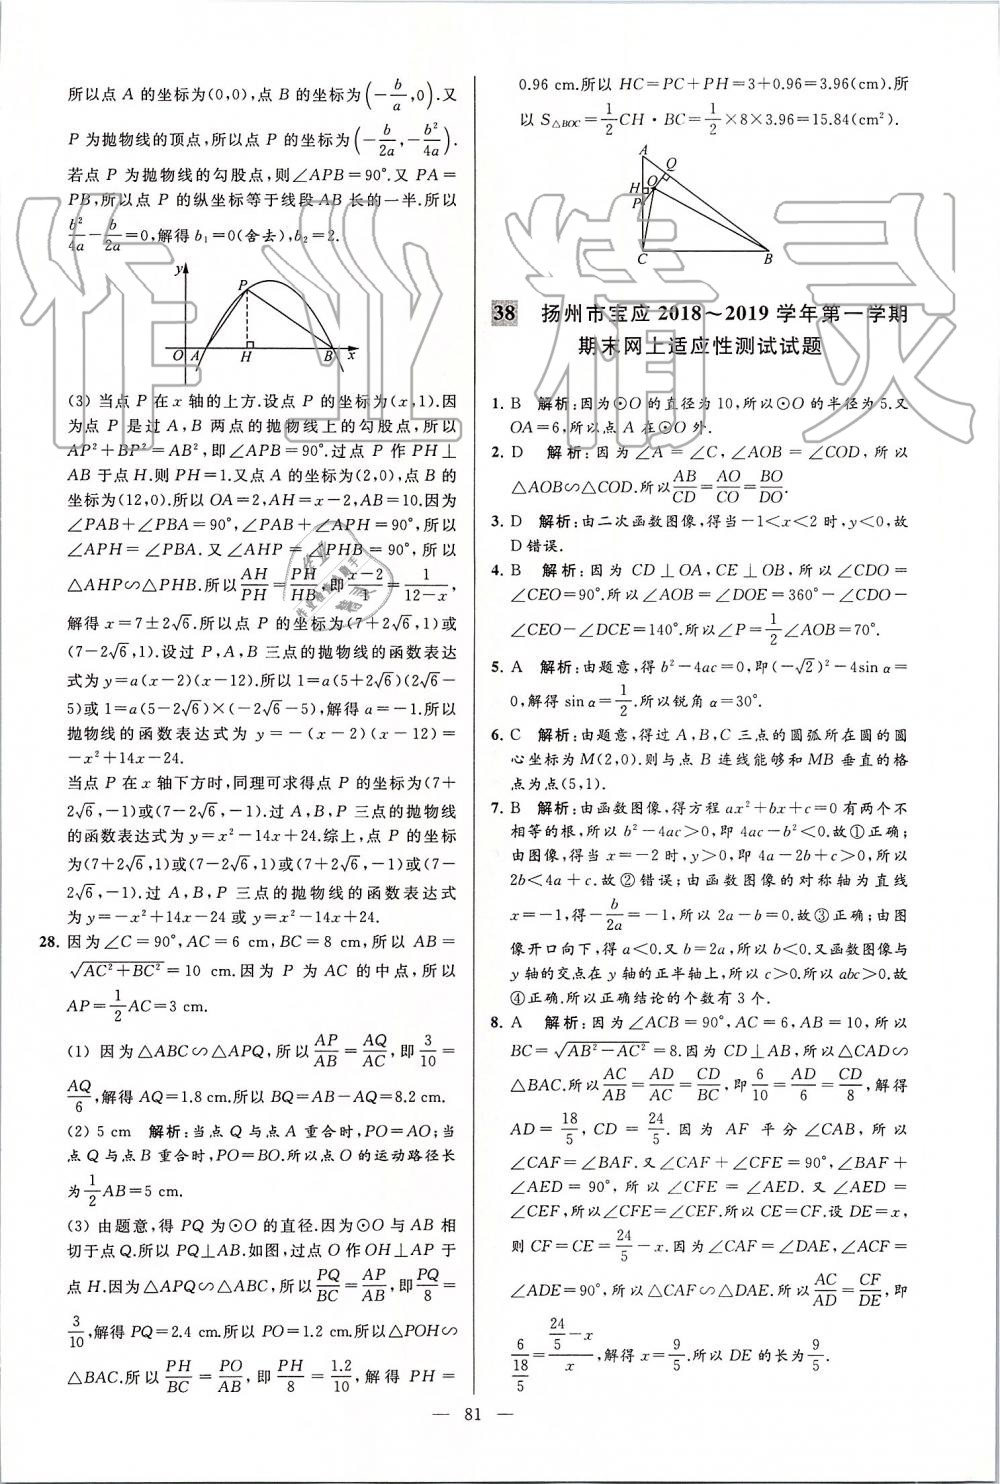 所以点 A 的坐标为(0,0),点 B 的坐标为(-b/a,0).又
P 为抛物线的顶点,所以点 P 的坐标为(-b/2a,-b²/4a).
若点 P 为抛物线的勾股点,则∠APB=90°.又 PA=
PB,所以点 P 的纵坐标等于线段 AB 长的一半.所以
b²/4a-b/2a=0,解得 b₁=0(舍去),b₂=2.
y
P
O A H B x
(3) 当点 P 在 x 轴的上方.设点 P 的坐标为(x,1).因
为点 P 是过 A,B 两点的抛物线上的勾股点,所以
AP²+BP²=AB²,即∠APB=90°.过点 P 作 PH⊥
AB 于点 H.则 PH=1.又点 A 的坐标为(2,0),点 B 的
坐标为(12,0).所以 OA=2,AH=x-2,AB=10.因为
∠PAB+∠PBA=90°,∠PAB+∠APH=90°,所以
∠APH=∠PBA.又∠AHP=∠PHB=90°,所以
△AHP∽△PHB.所以AH/PH=PH/HB,即(x-2)/1=1/(12-x),
解得 x=7±2√6.所以点 P 的坐标为(7+2√6,1)或
(7-2√6,1).设过 P,A,B 三点的抛物线的函数表达
式为y=a(x-2)(x-12).所以1=a(5+2√6)(2√6-
5)或1=a(5-2√6)×(-2√6-5),解得 a=-1.所以
抛物线的函数表达式为 y=-(x-2)(x-12)=
-x²+14x-24.
当点 P 在 x 轴下方时,同理可求得点 P 的坐标为(7+
2√6,-1)或(7-2√6,-1).过 A,B,P 三点的抛物线
的函数表达式为 y=x²-14x+24.综上,点 P 的坐标
为(7+2√6,1)或(7-2√6,1)或(7+2√6,-1)或(7-
2√6,-1).过 A,B,P 三点的抛物线的函数表达式
为 y=-x²+14x-24 或 y=x²-14x+24.
28. 因为∠C=90°,AC=6 cm,BC=8 cm,所以 AB=
√(AC²+BC²)=10 cm.因为 P 为 AC 的中点,所以
AP=1/2AC=3 cm.
(1) 因为△ABC∽△APQ,所以AP/AB=AQ/AC,即3/10=
AQ/6,解得 AQ=1.8 cm.所以 BQ=AB-AQ=8.2 cm.
(2) 5 cm 解析:当点 Q 与点 A 重合时,PO=AO;当
点 Q 与点 B 重合时,PO=BO.所以点 O 的运动路径长
为1/2AB=5 cm.
(3) 由题意,得 PQ 为⊙O 的直径.因为⊙O 与 AB 相
切于点 Q.所以 PQ⊥AB.如图,过点 O 作 OH⊥AP 于
点 H.因为△APQ∽△ABC,所以PQ/BC=AP/AB,即PQ/8=
3/10,解得 PQ=2.4 cm.所以 PO=1.2 cm.所以△POH∽
△BAC.所以PH/BC=PO/AB,即PH/8=1.2/10,解得 PH=
0.96 cm.所以 HC=PC+PH=3+0.96=3.96(cm).所
以 S△BOC=1/2CH·BC=1/2×8×3.96=15.84(cm²).
A
Q
H O
P
C B
38 扬州市宝应 2018～2019 学年第一学期
期末网上适应性测试试题
1. B 解析:因为⊙O 的直径为 10,所以⊙O 的半径为 5.又
OA=6,所以点 A 在⊙O 外.
2. D 解析:因为∠A=∠C,∠AOB=∠COD,所以
△AOB∽△COD.所以AB/CD=AO/CO=BO/DO.
3. D 解析:由二次函数图像,得当-1<x<2 时,y<0,故
D 错误.
4. B 解析:因为 CD⊥OA,CE⊥OB,所以∠CDO=
∠CEO=90°.所以∠AOB=∠DOE=360°-∠CDO-
∠CEO-∠DCE=140°.所以∠P=1/2∠AOB=70°.
5. A 解析:由题意,得 b²-4ac=0,即(-√2)²-4sin α=
0,解得 sin α=1/2.所以锐角 α=30°.
6. C 解析:由题意,得过 A,B,C 三点的圆弧所在圆的圆
心坐标为 M(2,0).则与点 B 连线能够和 MB 垂直的格
点为点(5,1).
7. B 解析:由函数图像,得方程 ax²+bx+c=0 有两个不
相等的根,所以 b²-4ac>0,即 4ac-b²<0.故①正确;
由图像,得当 x=-2 时,y>0,即 4a-2b+c>0,所以
2b<4a+c.故②错误;由函数图像的对称轴为直线
x=-1,得-b/2a=-1,所以 2a-b=0.故③正确;由图
像开口向下,得 a<0.又 b=2a,所以 b<0.又函数图像与
y 轴的交点在 y 轴的正半轴上,所以 c>0.所以 abc>0.故
④正确.所以正确结论的个数有 3 个.
8. A 解析:因为∠ACB=90°,AC=6,AB=10,所以
BC=√(AB²-AC²)=8.因为 CD⊥AB,所以△CAD∽
△BAC.所以AC/AB=AD/AC=CD/BC,即6/10=AD/6=CD/8,解得
AD=18/5,CD=24/5.因为 AF 平分∠CAB,所以
∠CAF=∠BAF.又∠CAF+∠CFE=90°,∠BAF+
∠AED=90°,所以∠CFE=∠AED.又∠AED=
∠CEF,所以∠CFE=∠CEF.所以 CE=CF.设 DE=x,
则 CF=CE=24/5-x.因为∠CAF=∠DAE,∠ACF=
∠ADE=90°,所以△CAF∽△DAE.所以AC/AD=CF/DE,即
6/(18/5)=(24/5-x)/x,解得 x=9/5.所以 DE 的长为9/5.
— 81 —
作业精灵